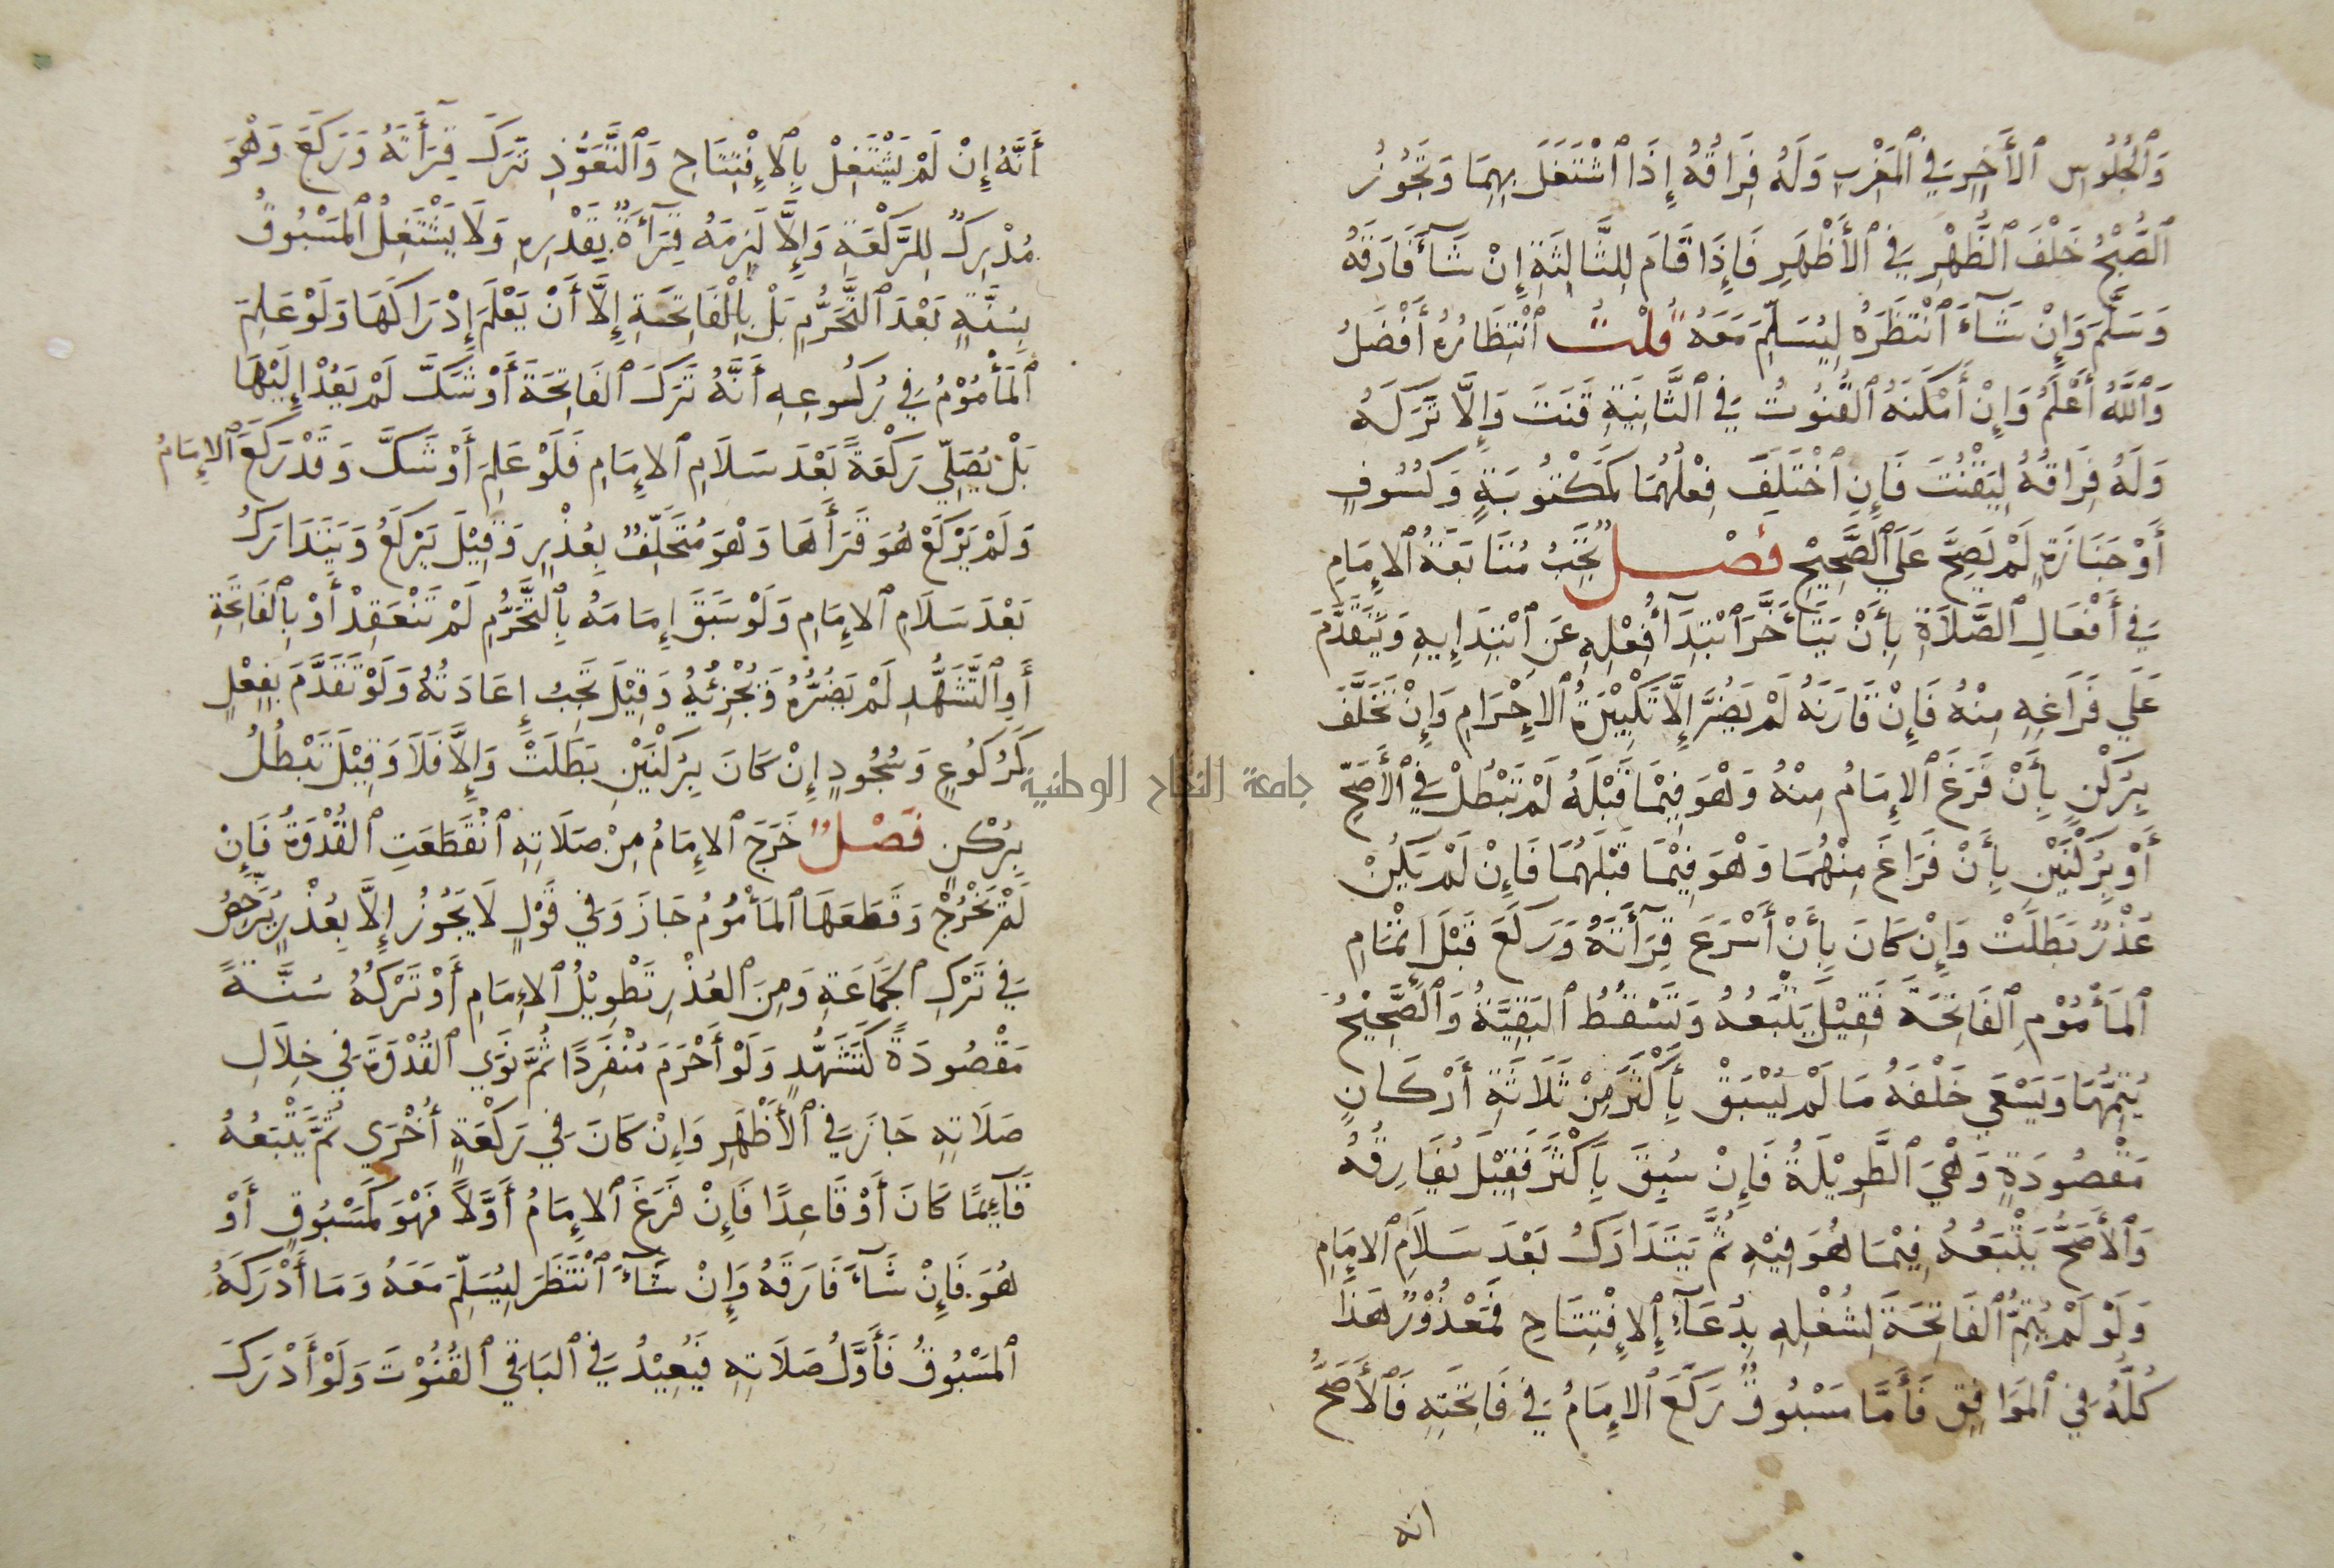 وَٱلْجُلُوسِ ٱلْأَخِيرِ فِي ٱلْمَغْرِبِ وَلَهُ فِرَاقُهُ إِذَا اشْتَغَلَ بِهِمَا وَتَجُوزُ
ٱلصُّبْحُ خَلْفَ ٱلظُّهْرِ فِي ٱلْأَظْهَرِ فَإِذَا قَامَ لِلثَّالِثَةِ إِنْ شَآءَ فَارَقَهُ
وَسَلَّمَ وَإِنْ شَآءَ ٱنْتَظَرَهُ لِيُسَلِّمَ مَعَهُ قُلْتُ ٱنْتِظَارُهُ أَفْضَلُ
وَٱللَّهُ أَعْلَمُ وَإِنْ أَمْكَنَهُ ٱلْقُنُوتُ فِي ٱلثَّانِيَةِ قَنَتَ وَإِلَّا تَرَكَهُ
وَلَهُ فِرَاقُهُ لِيَقْنُتَ فَإِنِ ٱخْتَلَفَ فِعْلُهُمَا كَمَكْتُوبَةٍ وَكُسُوفٍ
أَوْ جَنَازَةٍ لَمْ يَصِحَّ عَلَي ٱلصَّحِيْحِ فَصْلٌ تَجِبُ مُتَابَعَةُ ٱلْإِمَامِ
فِي أَفْعَالِ ٱلصَّلَاةِ بِأَنْ يَتَأَخَّرَ ٱبْتِدَآءُ فِعْلِهِ عَنِ ٱبْتِدَايِهِ وَيَتَقَدَّمَ
عَلَي فَرَاغِهِ مِنْهُ فَإِنْ قَارَنَهُ لَمْ يَضُرَّ إِلَّا تَكْبِيْرَةُ ٱلْإِحْرَامِ وَإِنْ تَخَلَّفَ
بِرُكْنٍ بِأَنْ فَرَغَ ٱلْإِمَامُ مِنْهُ وَهْوَ فِيْمَا قَبْلَهُ لَمْ تَبْطُلْ فِي ٱلْأَصَحِّ
أَوْ بِرُكْنَيْنِ بِأَنْ فَرَاغَ مِنْهُمَا وَهْوَ فِيْمَا قَبْلَهُمَا فَإِنْ لَمْ يَكُنْ
عُذْرٌ بَطَلَتْ وَإِنْ كَانَ بِأَنْ أَسْرَعَ قِرَآءَتَهُ وَرَكَعَ قَبْلَ إِتْمَامِ
ٱلْمَأْمُوْمِ ٱلْفَاتِحَةَ فَقِيْلَ يَتْبَعُهُ وَتَسْقُطُ ٱلْبَقِيَّةُ وَٱلصَّحِيْحُ
يُتِمُّهَا وَيَسْعَي خَلْفَهُ مَا لَمْ يُسْبَقْ بِأَكْثَرَ مِنْ ثَلَاثَةِ أَرْكَانٍ
مَقْصُودَةٍ وَهْيَ ٱلطَّوِيْلَةُ فَإِنْ سُبِقَ بِأَكْثَرَ فَقِيْلَ يُفَارِقُهُ
وَٱلْأَصَحُّ يَتْبَعُهُ فِيْمَا هُوَ فِيْهِ ثُمَّ يَتَدَارَكُ بَعْدَ سَلَامِ ٱلْإِمَامِ
وَلَوْ لَمْ يُتِمَّ ٱلْفَاتِحَةَ لِشُغْلِهِ بِدُعَآءِ ٱلْإِفْتِتَاحِ فَمَعْذُوْرٌ هَذَا
كُلُّهُ فِي ٱلْمُوَافِقِ فَأَمَّا مَسْبُوقٌ رَكَعَ ٱلْإِمَامُ فِي فَاتِحَتِهِ فَٱلْأَصَحُّ
انه
أَنَّهُ إِنْ لَمْ يَشْتَغِلْ بِٱلْإِفْتِتَاحِ وَٱلتَّعَوُّذِ تَرَكَ قِرَآءَتَهُ وَرَكَعَ وَهْوَ
مُدْرِكٌ لِلرَّكْعَةِ وَإِلَّا لَزِمَهُ قِرَآءَةٌ بِقَدْرِهِ وَلَا يَشْتَغِلُ ٱلْمَسْبُوقُ
بِسُنَّةٍ بَعْدَ ٱلتَّحَرُّمِ بَلْ بِٱلْفَاتِحَةِ إِلَّا أَنْ يَعْلَمَ إِدْرَاكَهَا وَلَوْ عَلِمَ
ٱلْمَأْمُوْمُ فِي رُكُوعِهِ أَنَّهُ تَرَكَ ٱلْفَاتِحَةَ أَوْ شَكَّ لَمْ يَعُدْ إِلَيْهَا
بَلْ يُصَلِّي رَكْعَةً بَعْدَ سَلَامِ ٱلْإِمَامِ فَلَوْ عَلِمَ أَوْ شَكَّ وَقَدْ رَكَعَ ٱلْإِمَامُ
وَلَمْ يَرْكَعْ هُوَ قَرَأَهَا وَهْوَ مُتَخَلِّفٌ بِعُذْرٍ وَقِيْلَ يَرْكَعُ وَيَتَدَارَكُ
بَعْدَ سَلَامِ ٱلْإِمَامِ وَلَوْ سَبَقَ إِمَامَهُ بِٱلتَّحَرُّمِ لَمْ تَنْعَقِدْ أَوْ بِٱلْفَاتِحَةِ
أَوِ ٱلتَّشَهُّدِ لَمْ يَضُرُّهُ وَتُجْزِئُهُ وَقِيْلَ تَجِبُ إِعَادَتُهُ وَلَوْ تَقَدَّمَ بِفِعْلٍ
كَرُكُوعٍ وَسُجُودٍ إِنْ كَانَ بِرُكْنَيْنِ بَطَلَتْ وَإِلَّا فَلَا وَقِيْلَ تَبْطُلُ
بِرُكْنٍ فَصْلٌ خَرَجَ ٱلْإِمَامُ مِنْ صَلَاتِهِ ٱنْقَطَعَتِ ٱلْقُدْوَةُ فَإِنْ
لَمْ يَخْرُجْ وَقَطَعَهَا ٱلْمَأْمُومُ جَازَ وَفِي قَوْلٍ لَا يَجُوزُ إِلَّا بِعُذْرٍ يُرَخِّصُ
فِي تَرْكِ ٱلْجَمَاعَةِ وَمِنَ ٱلْعُذْرِ تَطْوِيْلُ ٱلْإِمَامِ أَوْ تَرْكُهُ سُنَّةً
مَقْصُودَةً كَتَشَهُّدٍ وَلَوْ أَحْرَمَ مُنْفَرِدًا ثُمَّ نَوَي ٱلْقُدْوَةَ فِي خِلَالِ
صَلَاتِهِ جَازَ فِي ٱلْأَظْهَرِ وَإِنْ كَانَ فِي رَكْعَةٍ أُخْرَي ثُمَّ يَتْبَعُهُ
قَآئِمًا كَانَ أَوْ قَاعِدًا فَإِنْ فَرَغَ ٱلْإِمَامُ أَوَّلًا فَهْوَ كَمَسْبُوقٍ أَوْ
هُوَ فَإِنْ شَآءَ فَارَقَهُ وَإِنْ شَآءَ ٱنْتَظَرَ لِيُسَلِّمَ مَعَهُ وَمَا أَدْرَكَهُ
ٱلْمَسْبُوقُ فَأَوَّلُ صَلَاتِهِ فَيُعِيْدُ فِي ٱلْبَاقِي ٱلْقُنُوْتَ وَلَوْ أَدْرَكَ
جامعة النجاح الوطنية